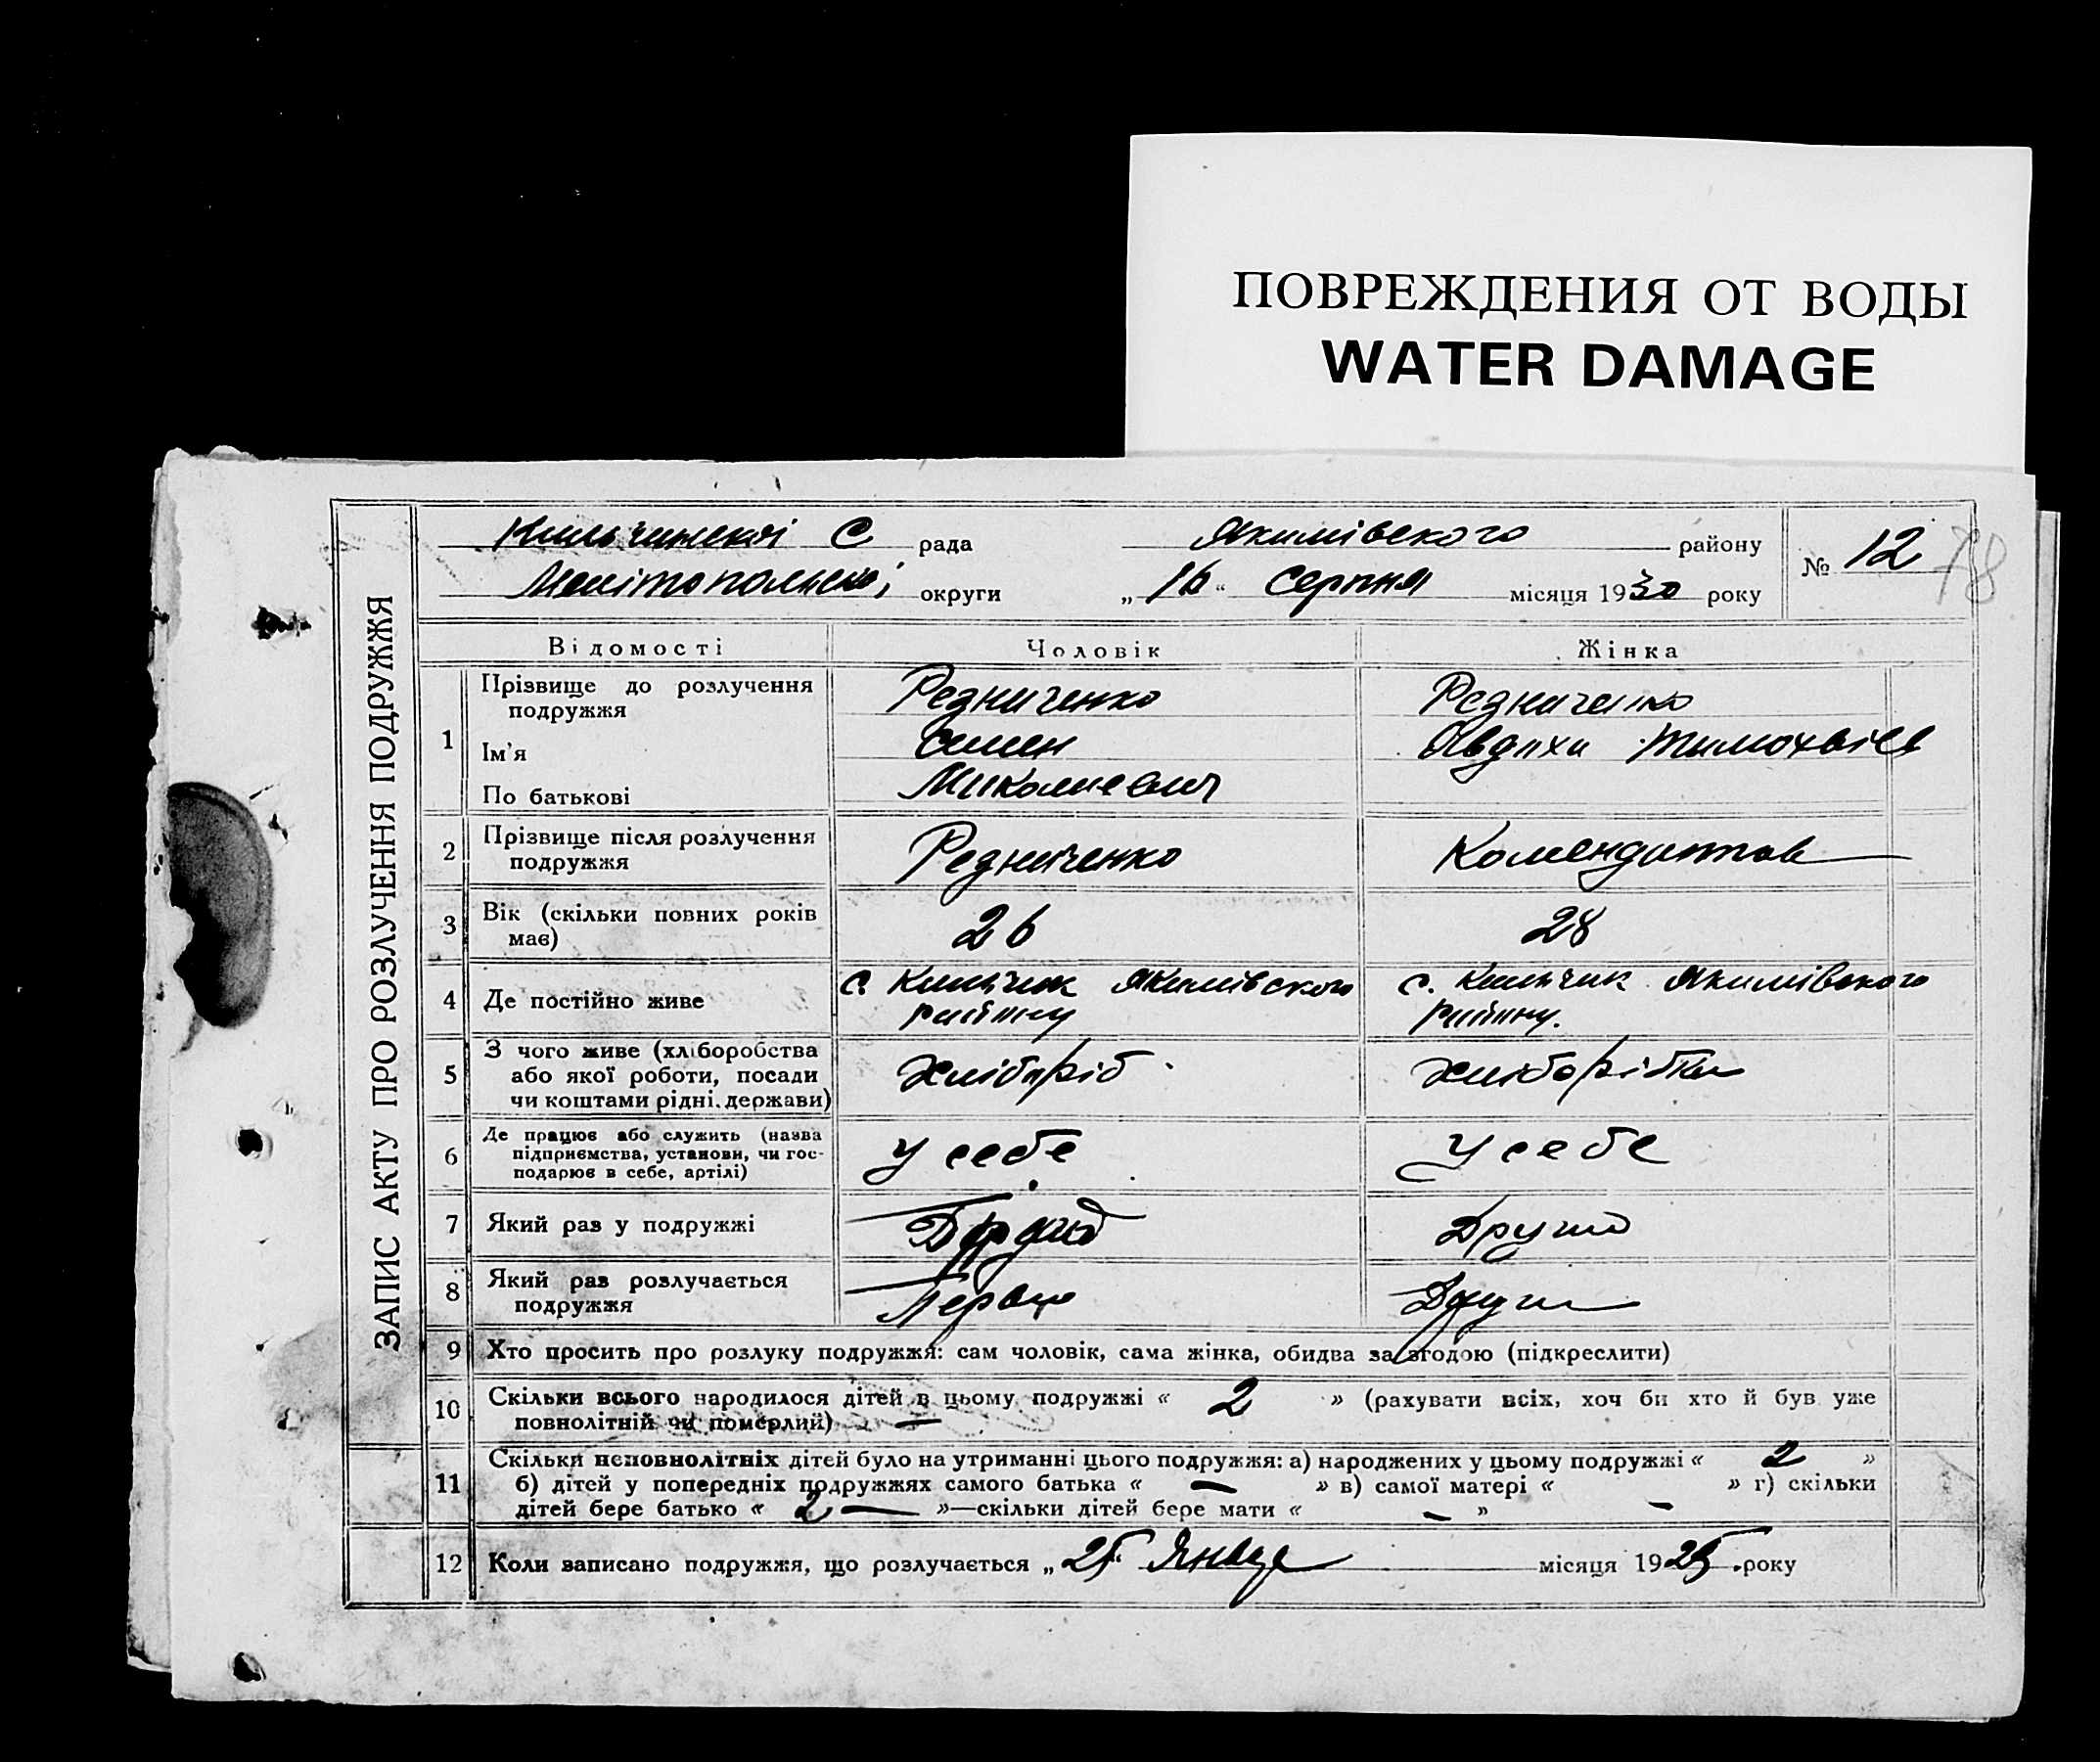 ПОВРЕЖДЕНИЯ ОТ ВОДЫ
WATER DAMAGE
ЗАПИС АКТУ ПРО РОЗЛУЧЕННЯ ПОДРУЖЖЯ
С рада Якимівского району № 12 78
Мелітопольської округи „16“ Серпня місяця 1930 року
Відомості Чоловік Жінка
1 Прізвище до розлучення подружжя Редниченко Редниченко
Ім'я Семен Явдоха Тимохвієв
По батькові Миколаевич
2 Прізвище після розлучення подружжя Редниченко Комендантов
3 Вік (скільки повних років має) 26 28
4 Де постійно живе с. Якимівского району с. Якимівского району.
5 З чого живе (хліборобства або якої роботи, посади чи коштами рідні, держави) Хлібороб Хліборобка
6 Де працює або служить (назва підприємства, установи, чи господарює в себе, артілі) У себе У себе
7 Який раз у подружжі Други
8 Який раз розлучається подружжя Други
9 Хто просить про розлуку подружжя: сам чоловік, сама жінка, обидва за згодою (підкреслити)
10 Скільки всього народилося дітей в цьому подружжі « 2 » (рахувати всіх, хоч би хто й був уже
повнолітній чи померлий) —
11 Скільки неповнолітніх дітей було на утриманні цього подружжя: а) народжених у цьому подружжі « 2 »
б) дітей у попередніх подружжях самого батька « — » в) самої матері « — » г) скільки
дітей бере батько « 2 — »—скільки дітей бере мати « — »
12 Коли записано подружжя, що розлучається „25“ Января місяця 1925 року